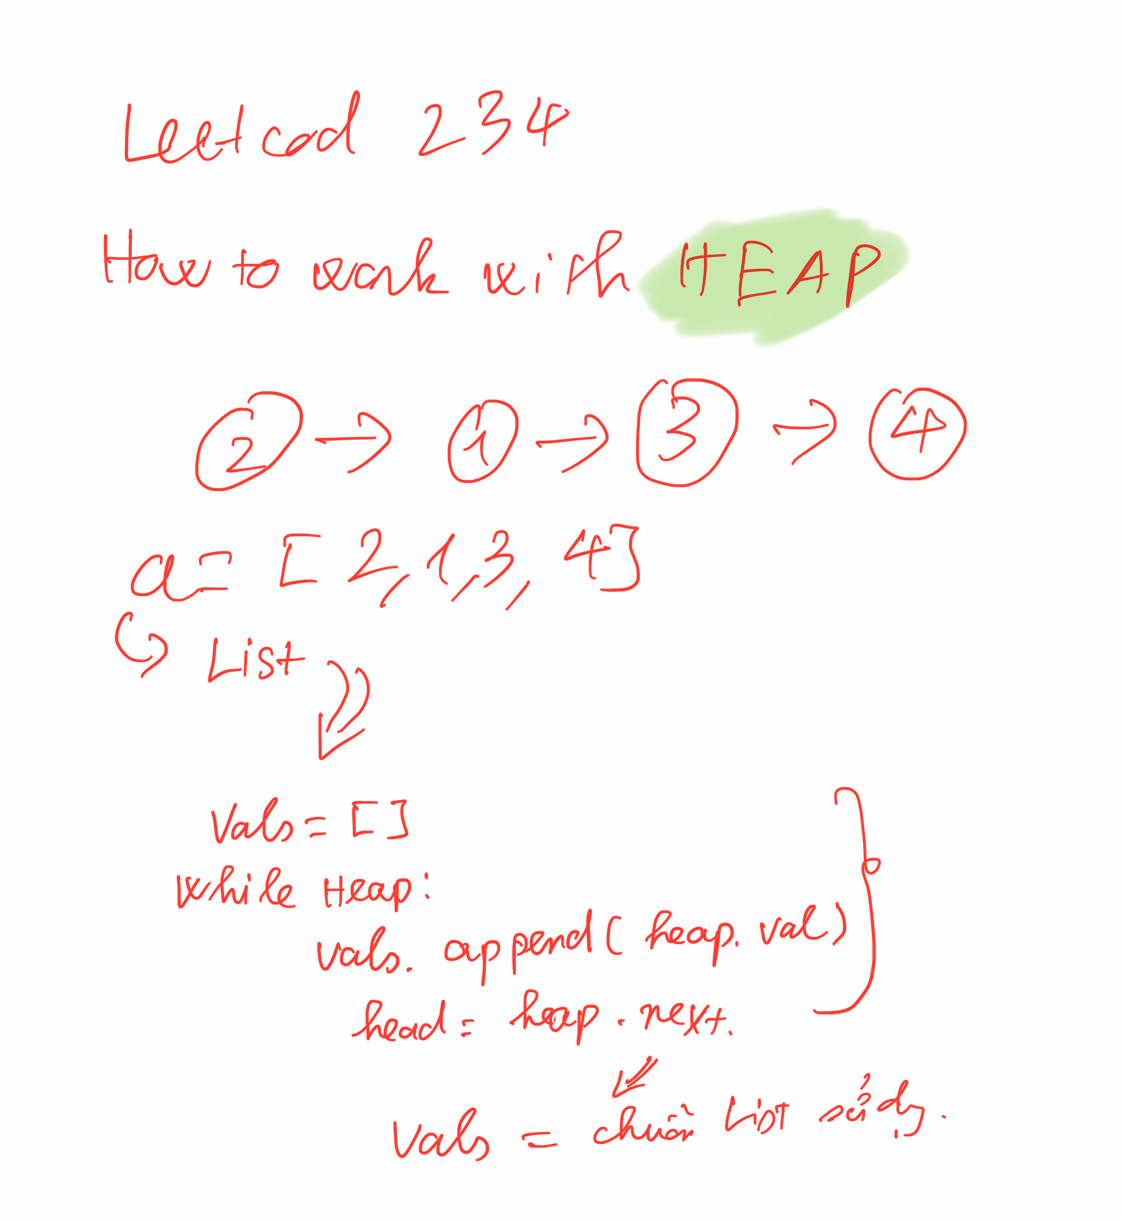 Leetcod 234
How to work with HEAP
2 → 1 → 3 → 4
a = [2,1,3,4]
↪ List
Vals = []
while Heap:
vals.append(heap.val)
head = heap.next.
Vals = chuẩn List sử dg.